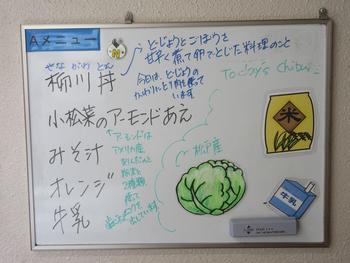 Aメニュー
せな かわ どん
柳川丼
どじょうとごぼうを
甘辛く煮て卵でとじた料理のこと
今日は、どじょうの
かわりにとり肉を使って
います
Today's
小松菜のアーモンドあえ
みそ汁
オレンジ
牛乳
アーモンドは
アメリカ産
粉末と
2種類
使って
出しています
松戸産
米
牛乳